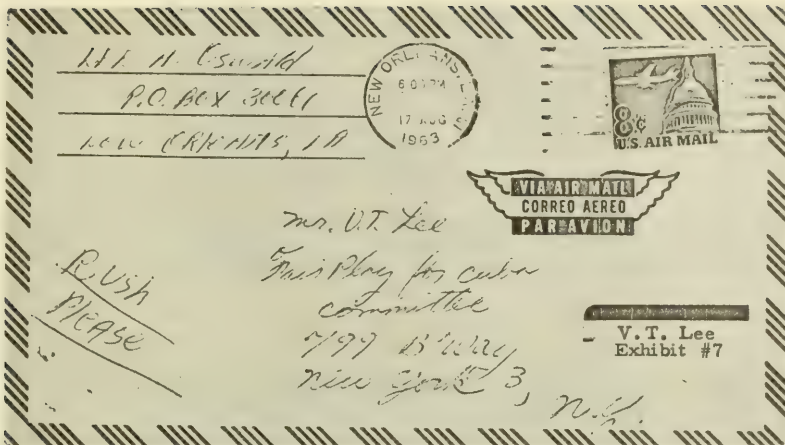 Lee H. Oswald
P.O. Box 30061
New Orleans, LA
NEW ORLEANS, LA
6 00 PM
17 AUG
1963
8¢
U.S. AIR MAIL
VIA AIR MAIL
CORREO AEREO
PAR AVION
Mr. V.T. Lee
Fair Play for Cuba
committee
799 B'way
New York 3,
N.Y.
Rush
Please
V.T. Lee
Exhibit #7